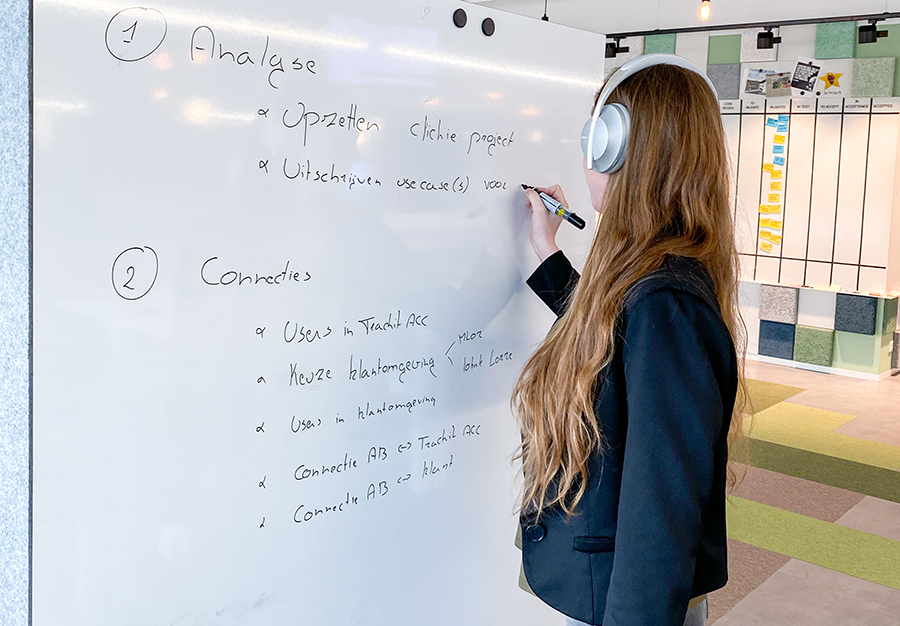 1 Analyse
Opzetten clickie project
Uitschrijven usecase(s) voor
2 Connecties
Users in Teachit Acc
Keuze klantomgeving
Users in klantomgeving
Connectie AB <-> Teachit Acc
Connectie AB <-> klant
TO VALIDATE
VALIDATED
IN TEST
TO ACCEPT
IN ACCEPTANCE
ACCEPTED